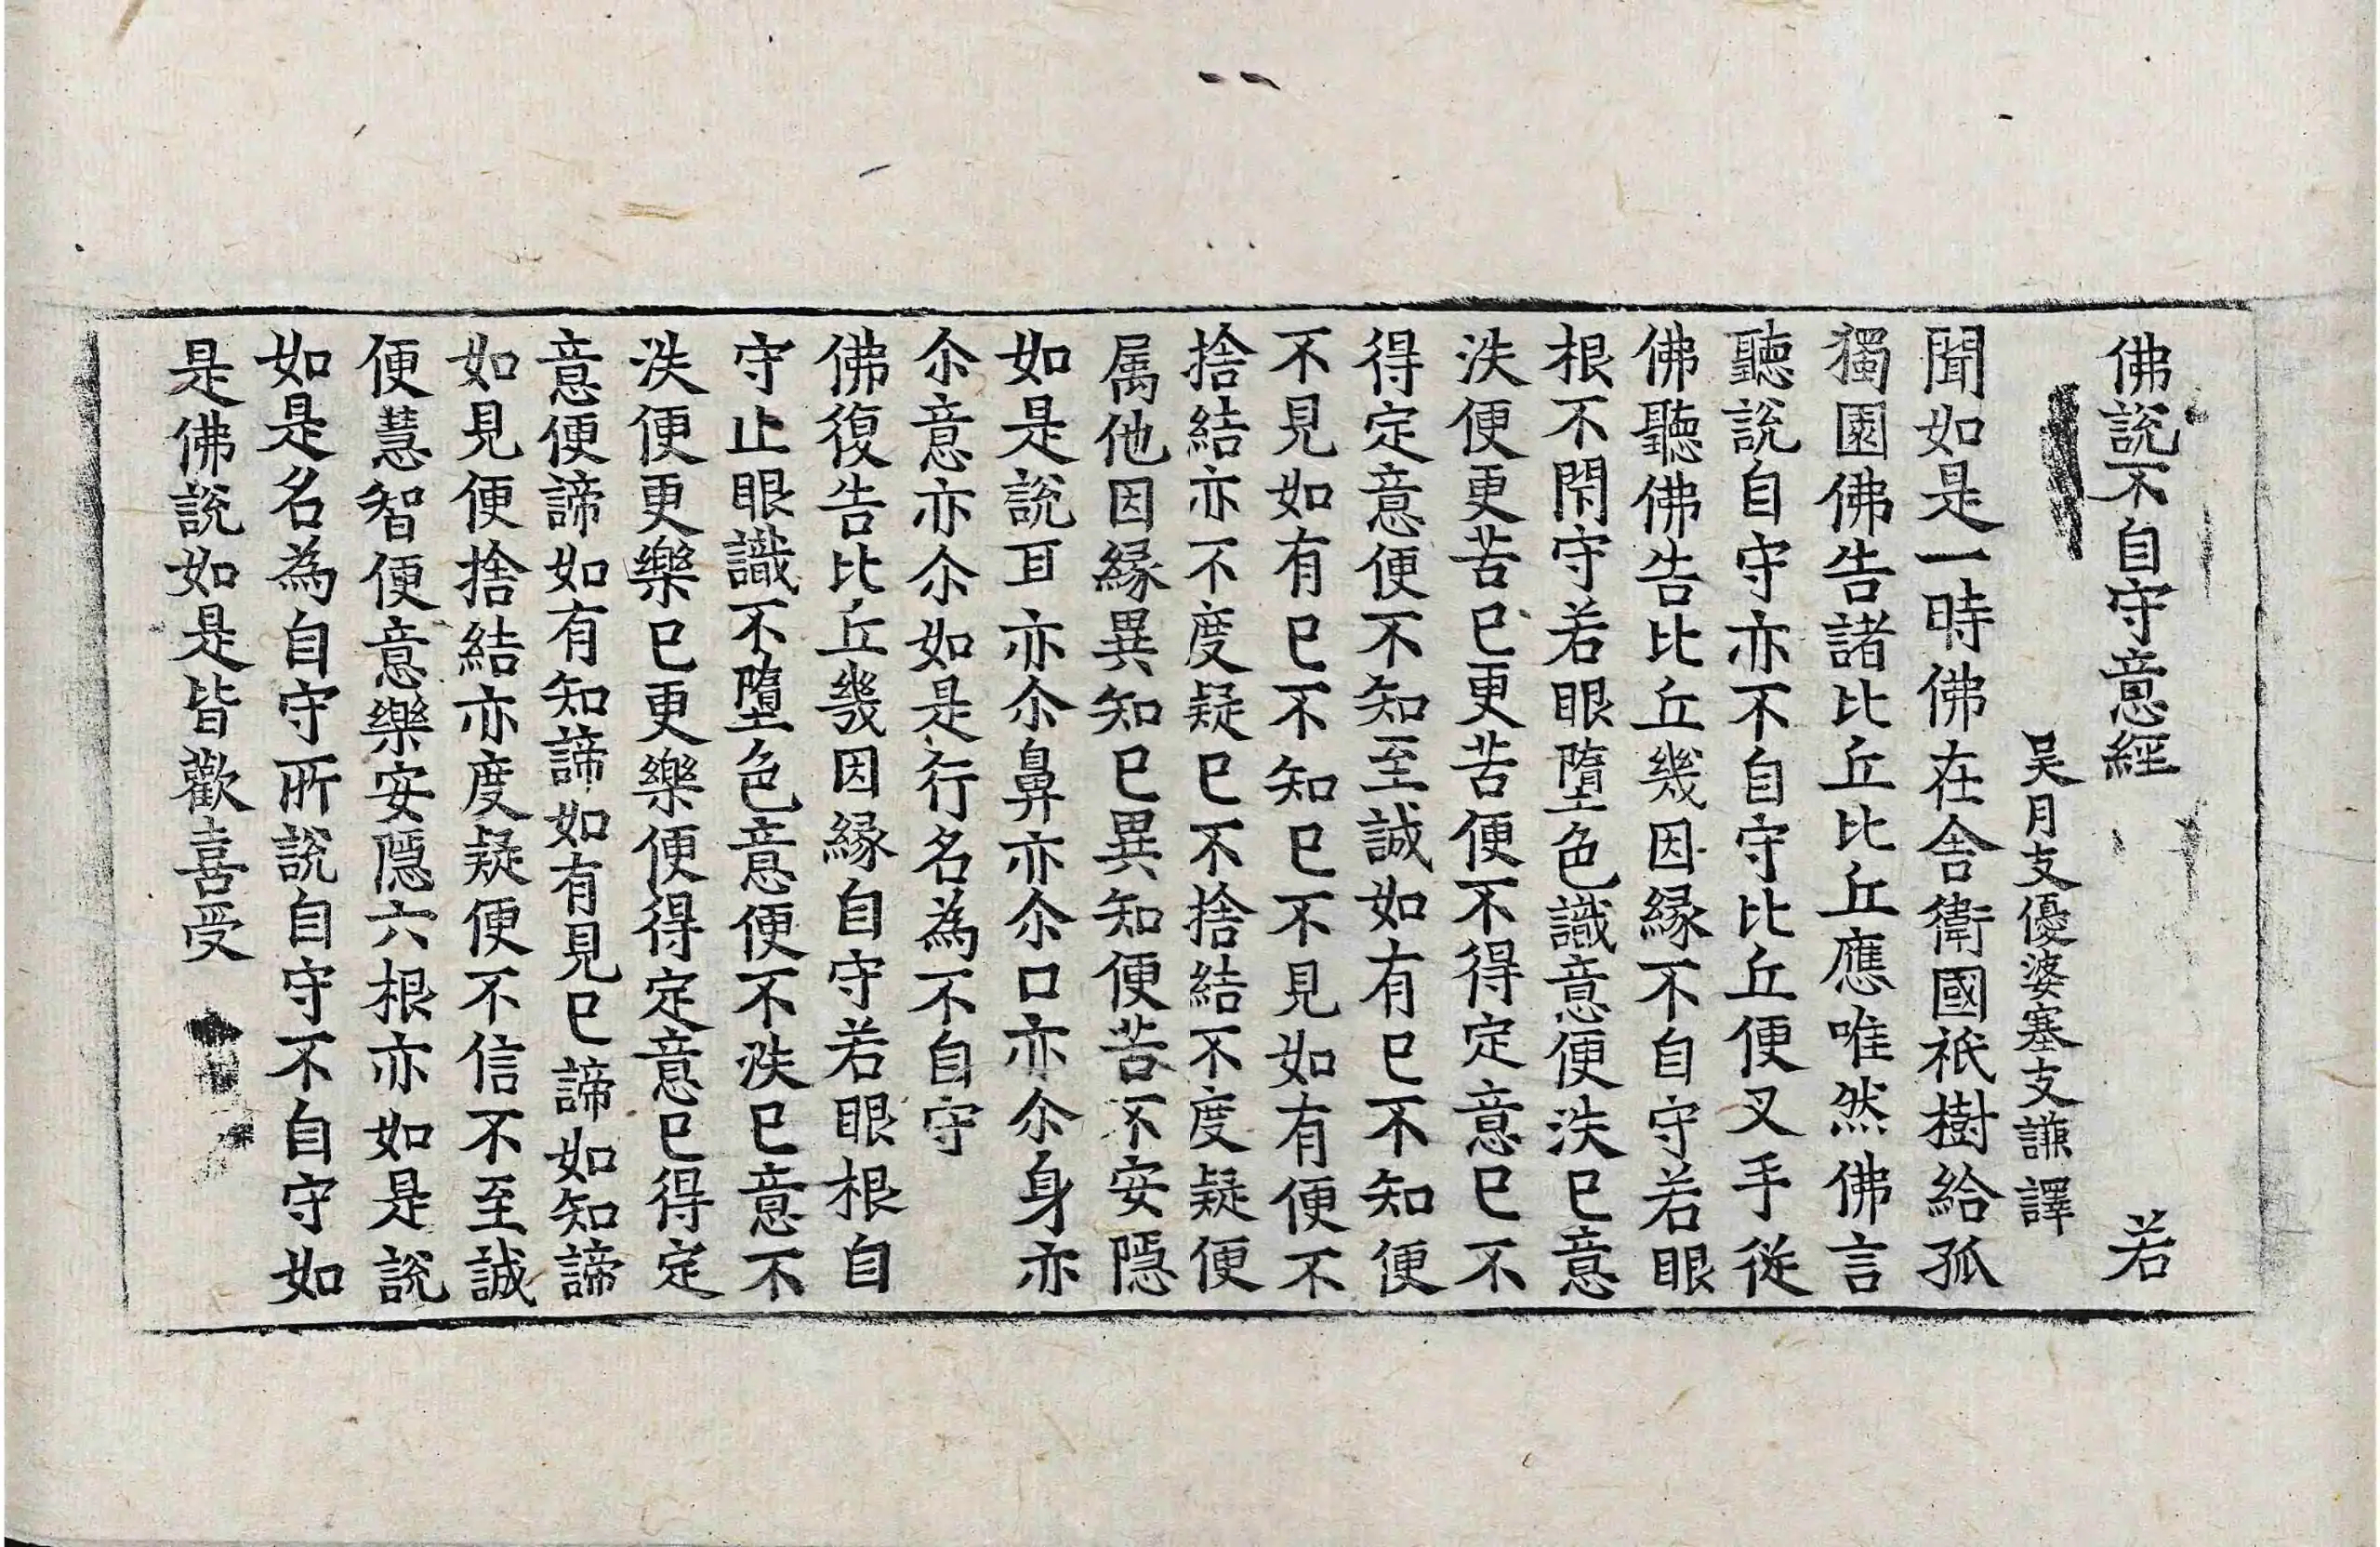 佛說不自守意經 若
吴月支優婆塞支謙譯
聞如是一時佛在舎衛國祇樹給孤
獨園佛告諸比丘比丘應唯然佛言
聽說自守亦不自守比丘便叉手從
佛聽佛告比丘幾因緣不自守若眼
根不閇守若眼墮色識意便泆已意
泆便更苦已更苦便不得定意已不
得定意便不知至誠如有已不知便
不見如有已不知已不見如有便不
捨結亦不度疑已不捨結不度疑便
属他因緣異知已異知便苦不安隱
如是說耳亦尒鼻亦尒口亦尒身亦
尒意亦尒如是行名為不自守
佛復告比丘幾因緣自守若眼根自
守止眼識不墮色意便不泆已意不
泆便更樂已更樂便得定意已得定
意便諦如有知諦如有見已諦如知諦
如見便捨結亦度疑便不信不至誠
便慧智便意樂安隱六根亦如是說
如是名為自守所說自守不自守如
是佛說如是皆歡喜受